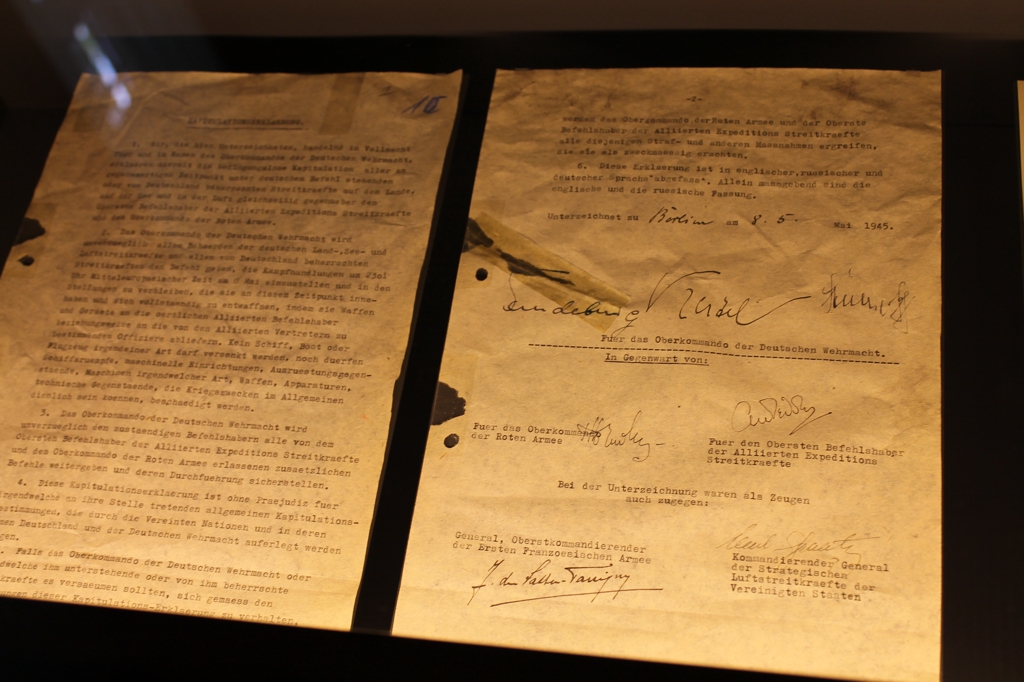 KAPITULATIONSERKLAERUNG.
1. Wir, die hier Unterzeichneten, handelnd in Vollmacht
fuer und im Namen des Oberkommandos der Deutschen Wehrmacht,
erklaeren hiermit die bedingungslose Kapitulation aller am
gegenwaertigen Zeitpunkt unter deutschem Befehl stehenden
oder von Deutschland beherrschten Streitkraefte auf dem Lande,
auf der See und in der Luft gleichzeitig gegenueber dem
Obersten Befehlshaber der Alliierten Expeditions Streitkraefte
und dem Oberkommando der Roten Armee.
2. Das Oberkommando der Deutschen Wehrmacht wird
unverzueglich allen Behoerden der deutschen Land-, See- und
Luftstreitkraefte und allen von Deutschland beherrschten
Streitkraeften den Befehl geben, die Kampfhandlungen um 2301
Uhr Mitteleuropaeischer Zeit am 8 Mai einzustellen und in den
Stellungen zu verbleiben, die sie an diesem Zeitpunkt inne-
haben und sich vollstaendig zu entwaffnen, indem sie Waffen
und Geraete an die oertlichen Alliierten Befehlshaber
beziehungsweise an die von den Alliierten Vertretern zu
bestimmenden Offiziere abliefern. Kein Schiff, Boot oder
Flugzeug irgendeiner Art darf versenkt werden, noch duerfen
Schiffsruempfe, maschinelle Einrichtungen, Ausruestungsgegen-
staende, Maschinen irgendwelcher Art, Waffen, Apparaturen,
technische Gegenstaende, die Kriegszwecken im Allgemeinen
dienlich sein koennen, beschaedigt werden.
3. Das Oberkommando der Deutschen Wehrmacht wird
unverzueglich den zustaendigen Befehlshabern alle von dem
Obersten Befehlshaber der Alliierten Expeditions Streitkraefte
und dem Oberkommando der Roten Armee erlassenen zusaetzlichen
Befehle weitergeben und deren Durchfuehrung sicherstellen.
4. Diese Kapitulationserklaerung ist ohne Praejudiz fuer
irgendwelche an ihre Stelle tretenden allgemeinen Kapitulations-
bestimmungen, die durch die Vereinten Nationen und in deren
men Deutschland und der Deutschen Wehrmacht auferlegt werden
gen.
. Falls das Oberkommando der Deutschen Wehrmacht oder
welche ihm unterstehende oder von ihm beherrschte
kraefte es versaeumen sollten, sich gemaess den
ungen dieser Kapitulations-Erklaerung zu verhalten,
-2-
werden das Oberkommando der Roten Armee und der Oberste
Befehlshaber der Alliierten Expeditions Streitkraefte
alle diejenigen Straf- und anderen Massnahmen ergreifen,
die sie als zweckmaessig erachten.
6. Diese Erklaerung ist in englischer, russischer und
deutscher Sprache abgefasst. Allein massgebend sind die
englische und die russische Fassung.
Unterzeichnet zu Berlin am 8. 5. Mai 1945.
Keitel
Fuer das Oberkommando der Deutschen Wehrmacht.
In Gegenwart von:
Fuer das Oberkommando
der Roten Armee
Fuer den Obersten Befehlshaber
der Alliierten Expeditions
Streitkraefte
Bei der Unterzeichnung waren als Zeugen
auch zugegen:
General, Oberstkommandierender
der Ersten Franzoesischen Armee
Kommandierender General
der Strategischen
Luftstreitkraefte der
Vereinigten Staaten